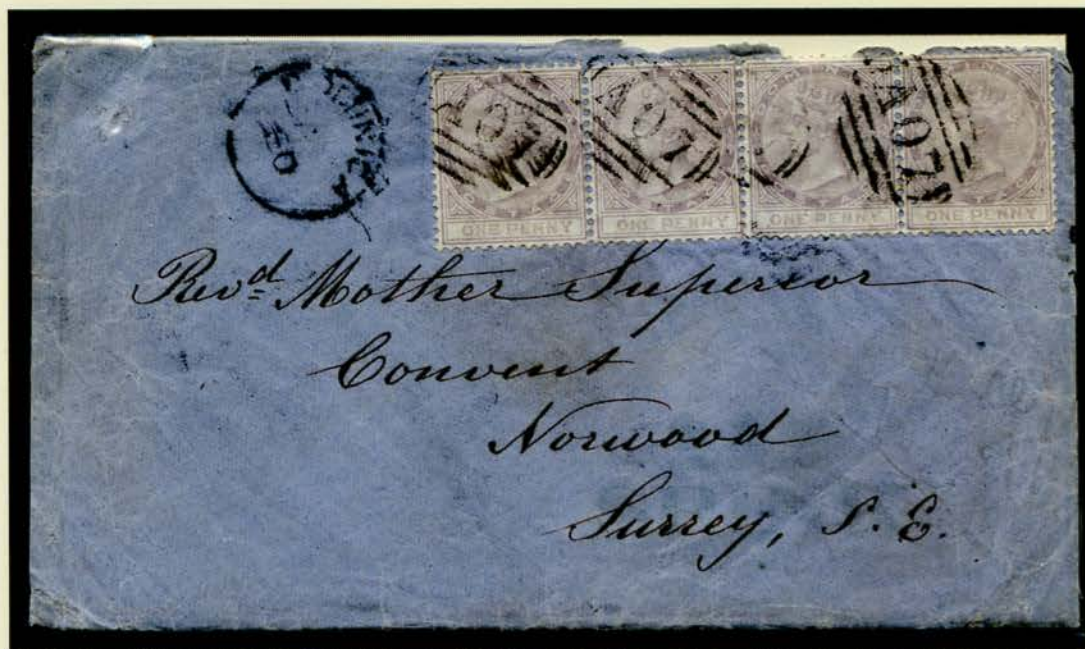 A07 A07 A07
ONE PENNY ONE PENNY ONE PENNY ONE PENNY
Rev<sup>d</sup> Mother Superior
Convent
Norwood
Surrey, S. E.